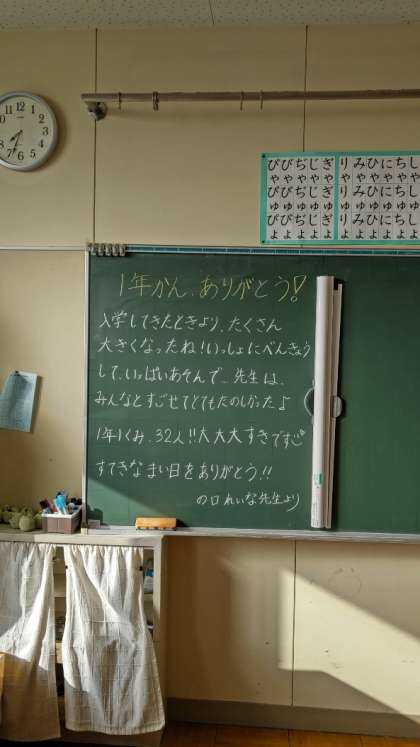 1年かん、ありがとう!
入学してきたときより、たくさん
大きくなったね!いっしょにべんきょう
して、いっぱいあそんで、先生は、
みんなとすごせてとてもたのしかったよ
1年1くみ、32人!!大大大すきです
すてきなまい日をありがとう!!
のロれいな先生より
ぴびぢじぎりみひにちし
ゃゃゃゃゃゃゃゃゃゃゃ
ぴびぢじぎりみひにちし
ゅゅゅゅゅゅゅゅゅゅゅ
ぴびぢじぎりみひにちし
ょょょょょょょょょょょ
11 12 1 2 3 4 5 6 7 8 9 10